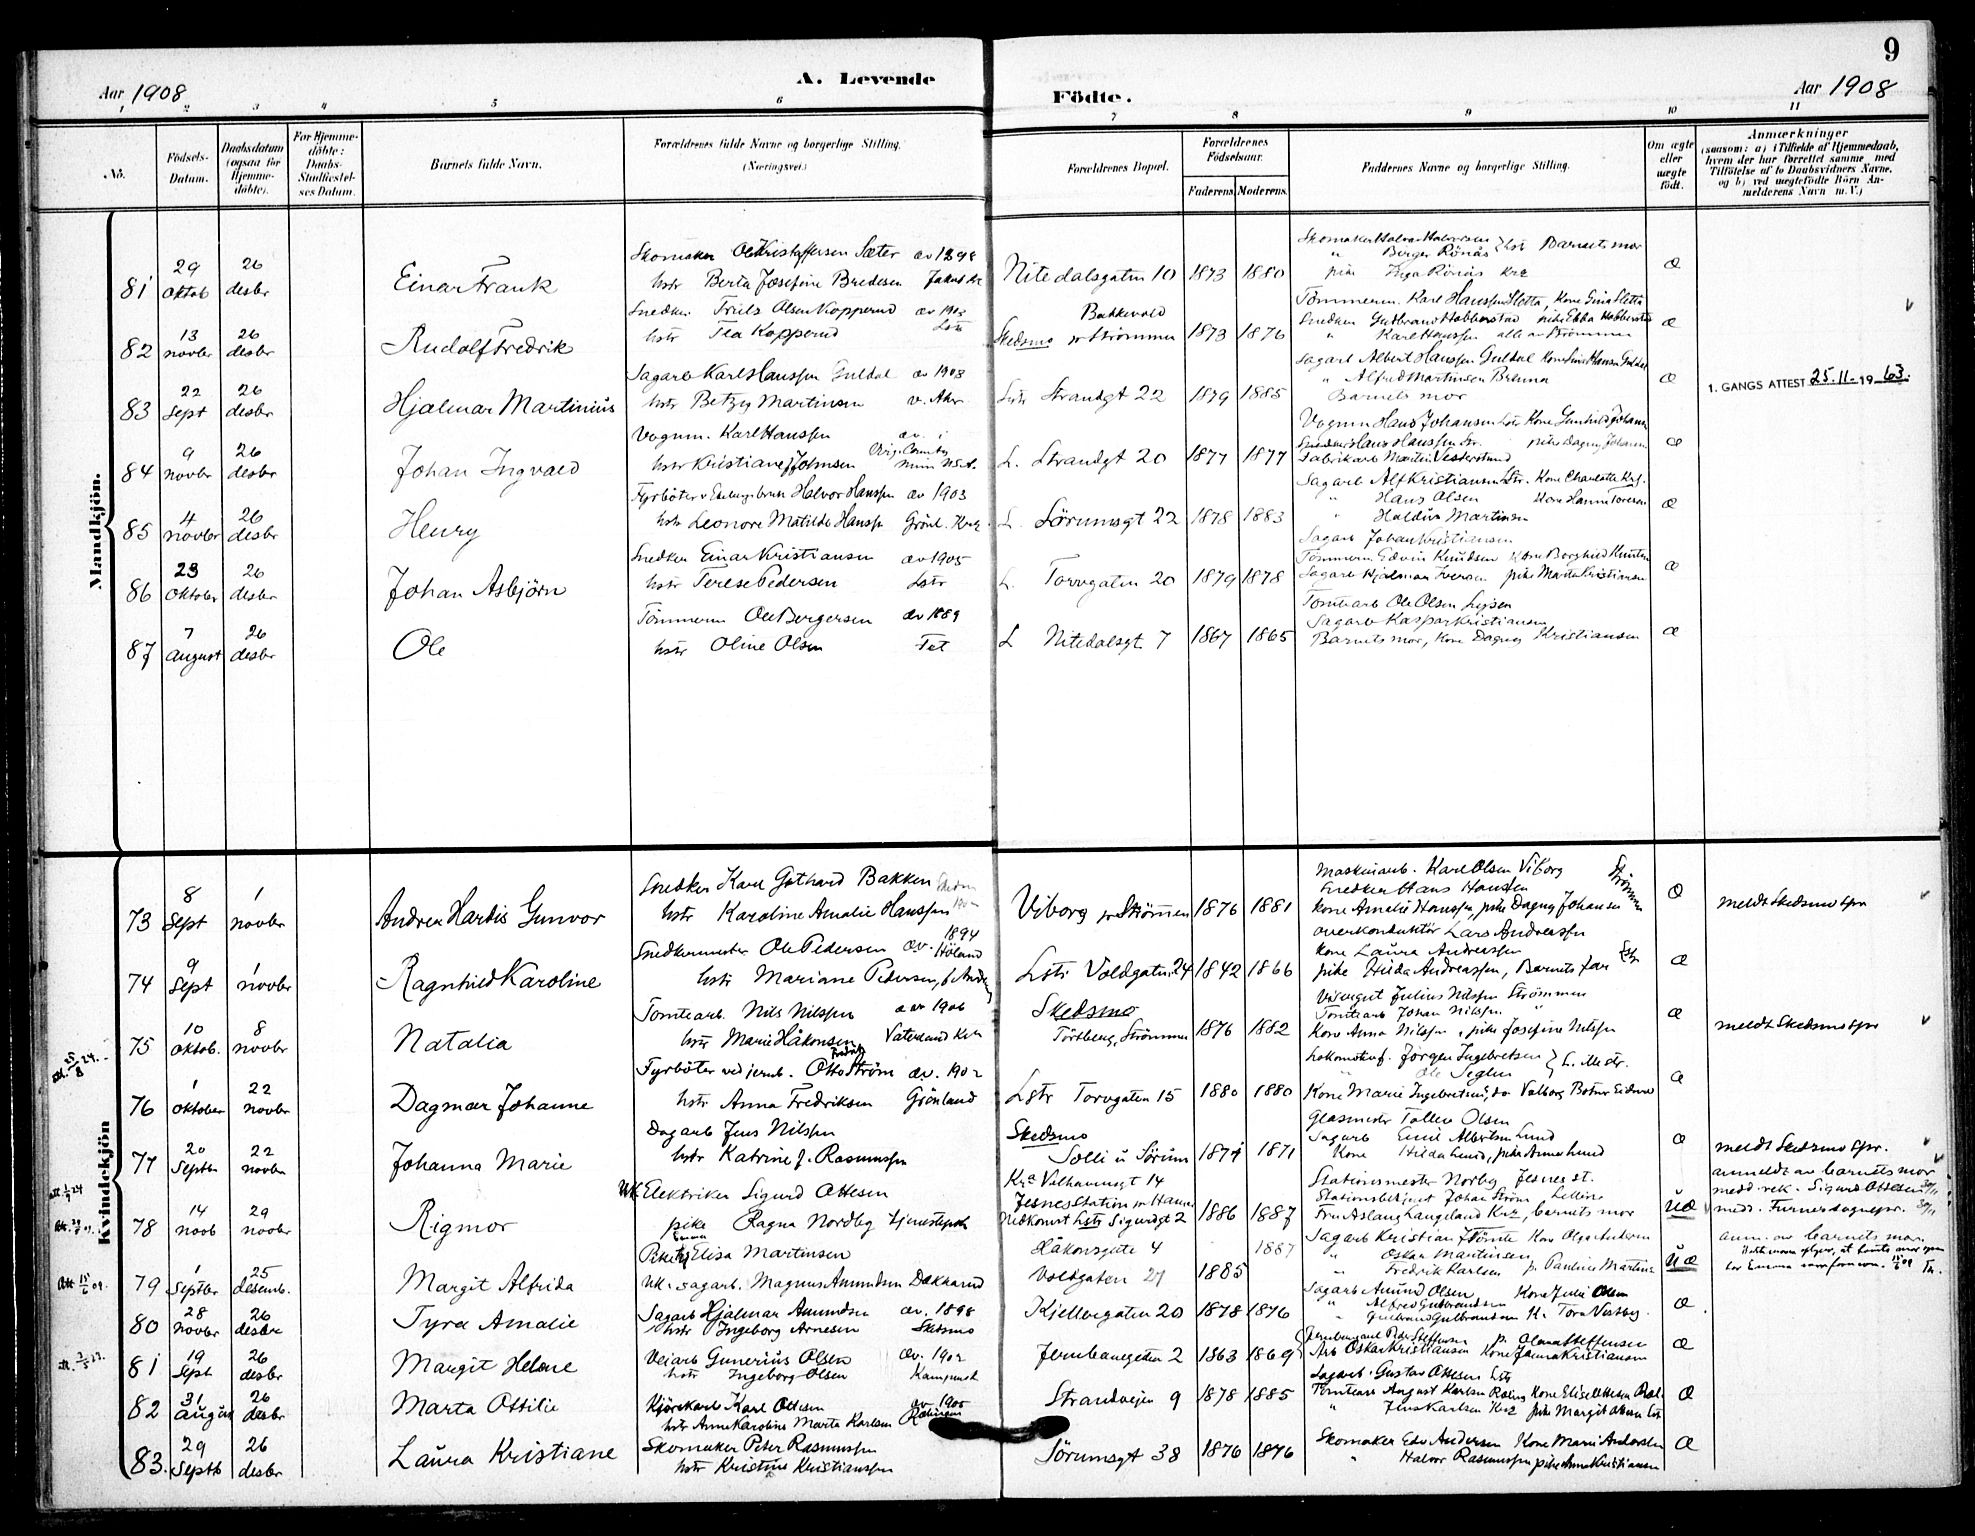 9
Aar 1908
A. Levende
Födte.
Aar 1908
1 2 3 4 5 6 7 8 9 10 11
No.
Födsels-Datum.
Daabsdatum (ogsaa for Hjemmedöbte).
For Hjemmedöbte: Daabs-Stadfæstelses Datum.
Barnets fulde Navn.
Forældrenes fulde Navne og borgerlige Stilling.
(Næringsvei.)
Forældrenes Bopæl.
Forældrenes Födselsaar.
Faderens. Moderens.
Faddernes Navne og borgerlige Stilling.
Om ægte eller uægte födt.
Anmærkninger
(saasom: a) i Tilfælde af Hjemmedaab, hvem der har forrettet samme, med Tilföielse af to Daabsvidners Navne, og b) ved uægtefödte Börn Anmelderens Navn m. V.)
Mandkjön.
81 29 oktob 26 desbr Einar Frank
Skomaker Ole Kristoffersen Sæter av 1898
hstr Berta Josefine Bredesen Jakob Kr
Nitedalsgaten 10 1873 1880
Skomaker Halvor Halvorsen Lstr Barnets mor
" Birger Rönås
pike Inga Rönås Kra
Æ
82 13 novbr 26 desbr Rudolf Fredrik
Snedker Truls Olsen Kopperud av 1903
hstr Tea Kopperud Lstr
Bakkevold
Skedsmo pr Strömmen 1873 1876
Tömmerm. Karl Hanssen Sletta, Kone Gina Sletta
Snedker Gutbrand Habberstad pike Ebba Habberstad
" Karl Hanssen alle av Strömmen
Æ
83 22 Sept 26 desbr Hjalmar Martinius
Sagarb Karl Hanssen Guldal av 1903
hstr Betzy Martinsen v. Aker
Lstr Strandgt 22 1879 1885
Sagarb Albert Hanssen Guldal
" Alfred Martinsen Brenna
Barnets mor
Æ
1. GANGS ATTEST 25.11.-19 63.
84 9 novbr 26 desbr Johan Ingvald
Vognm. Karl Hanssen av. i
hstr Kristiane Johnsen
L. Strandgt 20 1877 1877
Vognm Hans Johansen Lstr Kone Gunhild Johansen
Snedker Hans Hanssen Str. pike Dagny Johansen
Fabrikarb Martin Vesterstrand
Æ
85 4 novbr 26 desbr Henry
Fyrböter v Halvor Hanssen av 1903
hstr Leonore Matilde Hanssen Grönl. Kra
L. Sörumsgt 22 1878 1883
Sagarb Alf Kristiansen Str. Kone Charlotte Kra.
" Hans Olsen Kone Hanna Toresen
" Haldur Martinsen
Æ
86 23 oktober 26 desbr Johan Asbjörn
Snedker Einar Kristiansen av 1905
hstr Terese Pedersen Lstr
L. Torvgaten 20 1879 1878
Sagarb Johan Kristiansen
Tömmerm Edvin Knudsen Kone Borghild Knutsen
Sagarb Hjalmar Iversen pike Marta Kristiansen
Æ
87 7 August 26 desbr Ole
Tömmerm Ole Bergersen av 1889
hstr Oline Olsen Fet
L Nitedalsgt 7 1867 1865
Tomtearb Ole Olsen
Sagarb Kaspar Kristiansen
Barnets mor, Kone Dagny Kristiansen
Æ
Kvindekjön
73 8 Sept 1 novbr Andrea Hardis Gunvor
Snedker Karl Gothard Bakken
hstr Karoline Amalie Hanssen
Viborg pr Strömmen 1876 1881
Maskinarb. Karl Olsen Viborg
Snedker Hans Hansen Strömmen
Kone Amalie Hanssen, pike Dagny Johansen
Æ
meldt Skedsmo spr
74 9 Sept 1 novbr Ragnhild Karoline
Snedkermester Ole Pedersen av. 1894 Höland
hstr Mariane Pedersen, f. Anders
Lstr Voldgaten 24 1842 1866
Overkonduktör Lars Andreassen
Kone Laura Andreassen
pike Hilda Andreassen, Barnets far Lstr
Æ
75 10 oktob. 8 novbr Natalia
Tomtearb. Nils Nilssen av 1906
hstr Marie Håkonsen Vaterland Kra
Skedsmo
Torsberg, Strömmen 1876 1882
Visergut Julius Nilssen Strömmen
Tomtearb Johan Nilssen "
Kone Anna Nilssen, pike Josefine Nilssen
Æ
meldt Skedsmo spr
76 1 oktober 22 novbr Dagmar Johanne
Fyrböter ved jernb. Otto Fredrik Ström av. 1902
hstr Anna Fredriksen Grönland
Lstr Torvgaten 15 1880 1880
Lokomotivf. Jörgen Ingebretsen L. Mestr.
Kone Marie Ingebretsen, do Valborg
Æ
77 20 Septbr 22 novbr Johanna Marie
Dagarb Jens Nilssen
hstr Katrine f. Rasmussen
Skedsmo
Solli u Sörum 1874 1871
Glasmester Tollev Olsen
Sagarb Emil Albertsen Lund
Kone Hilda Lund, pike Anna Lund
Æ
meldt Skedsmo spr.
78 14 novb 29 novbr Rigmor
Uk. Elektriker Sigurd Ottesen
pike Ragna Nordby tjenestepike
Kra Vilhavensgt 14
Jesnes Station pr Hamar
Nedkomst Lstr Sigurdsgt 2 1886 1887
Stationsmester Norby Jesnes st.
Stationsbetjent Johan Ström
Fru Aslaug Langeland Kra, barnets mor
UÆ
anmeldt av barnets mor
medd. rek. Sigurd Ottesen 30/11
medd. Furnes sognepr. 30/11
79 1 Septbr 25 desemb. Margit Alfrida
Pike Emma Elisa Martinsen
Uk. sagarb. Magnus Amundsen Dakkarud
Håkonsgate 4 1887
Voldgaten 21 1885
Sagarb Kristian Kone Olga
" Oskar Martinsen
" Fredrik Karlsen p. Pauline Martins
UÆ
anm. av barnets mor.
80 28 novbr 26 desbr Tyra Amalie
Sagarb Hjalmar Amundsen av. 1898
hstr Ingeborg Arnesen Skedsmo
Kjellergaten 20 1878 1876
Sagarb Amund Olsen Kone Julie Olsen
" Alfred Gulbrandsen
" Gulbrand Gulbrandsen K. Tora Vestby
Æ
81 19 Sept 26 desbr Margit Helene
Veiarb Gunerius Olsen av. 1902
hstr Ingeborg Olsen Kampen
Jernbanegaten 2 1863 1869
Peder Steffensen p. Olena Steffensen
Arb Oskar Kristiansen Kone Janna Kristiansen
Æ
82 31 august 26 desbr Marta Ottilie
Kjörekarl Karl Ottesen av. 1905
hstr Anne Karoline Marta Karlsen
Strandveien 9 1878 1885
Sagarb. Gustav Ottesen Lstr
Tomtearb August Karlsen Kone Elise Ottesen
" Jens Karlsen Kra pike Margit Lstr
Æ
83. 29 Septb 26 desbr Laura Kristiane
Skomaker Peter Rasmussen
hstr Kristine Kristianssen
Sörumsgt 38 1876 1876
Skomaker Edv Andersen Kone Marie Andersen
" Halvor Rasmussen pike Anna Kristiansen
Æ